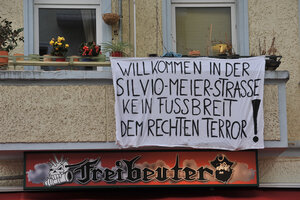 WILLKOMMEN IN DER
SILVIO-MEIER-STRASSE
KEIN FUSSBREIT
DEM RECHTEN TERROR!
Freibeuter